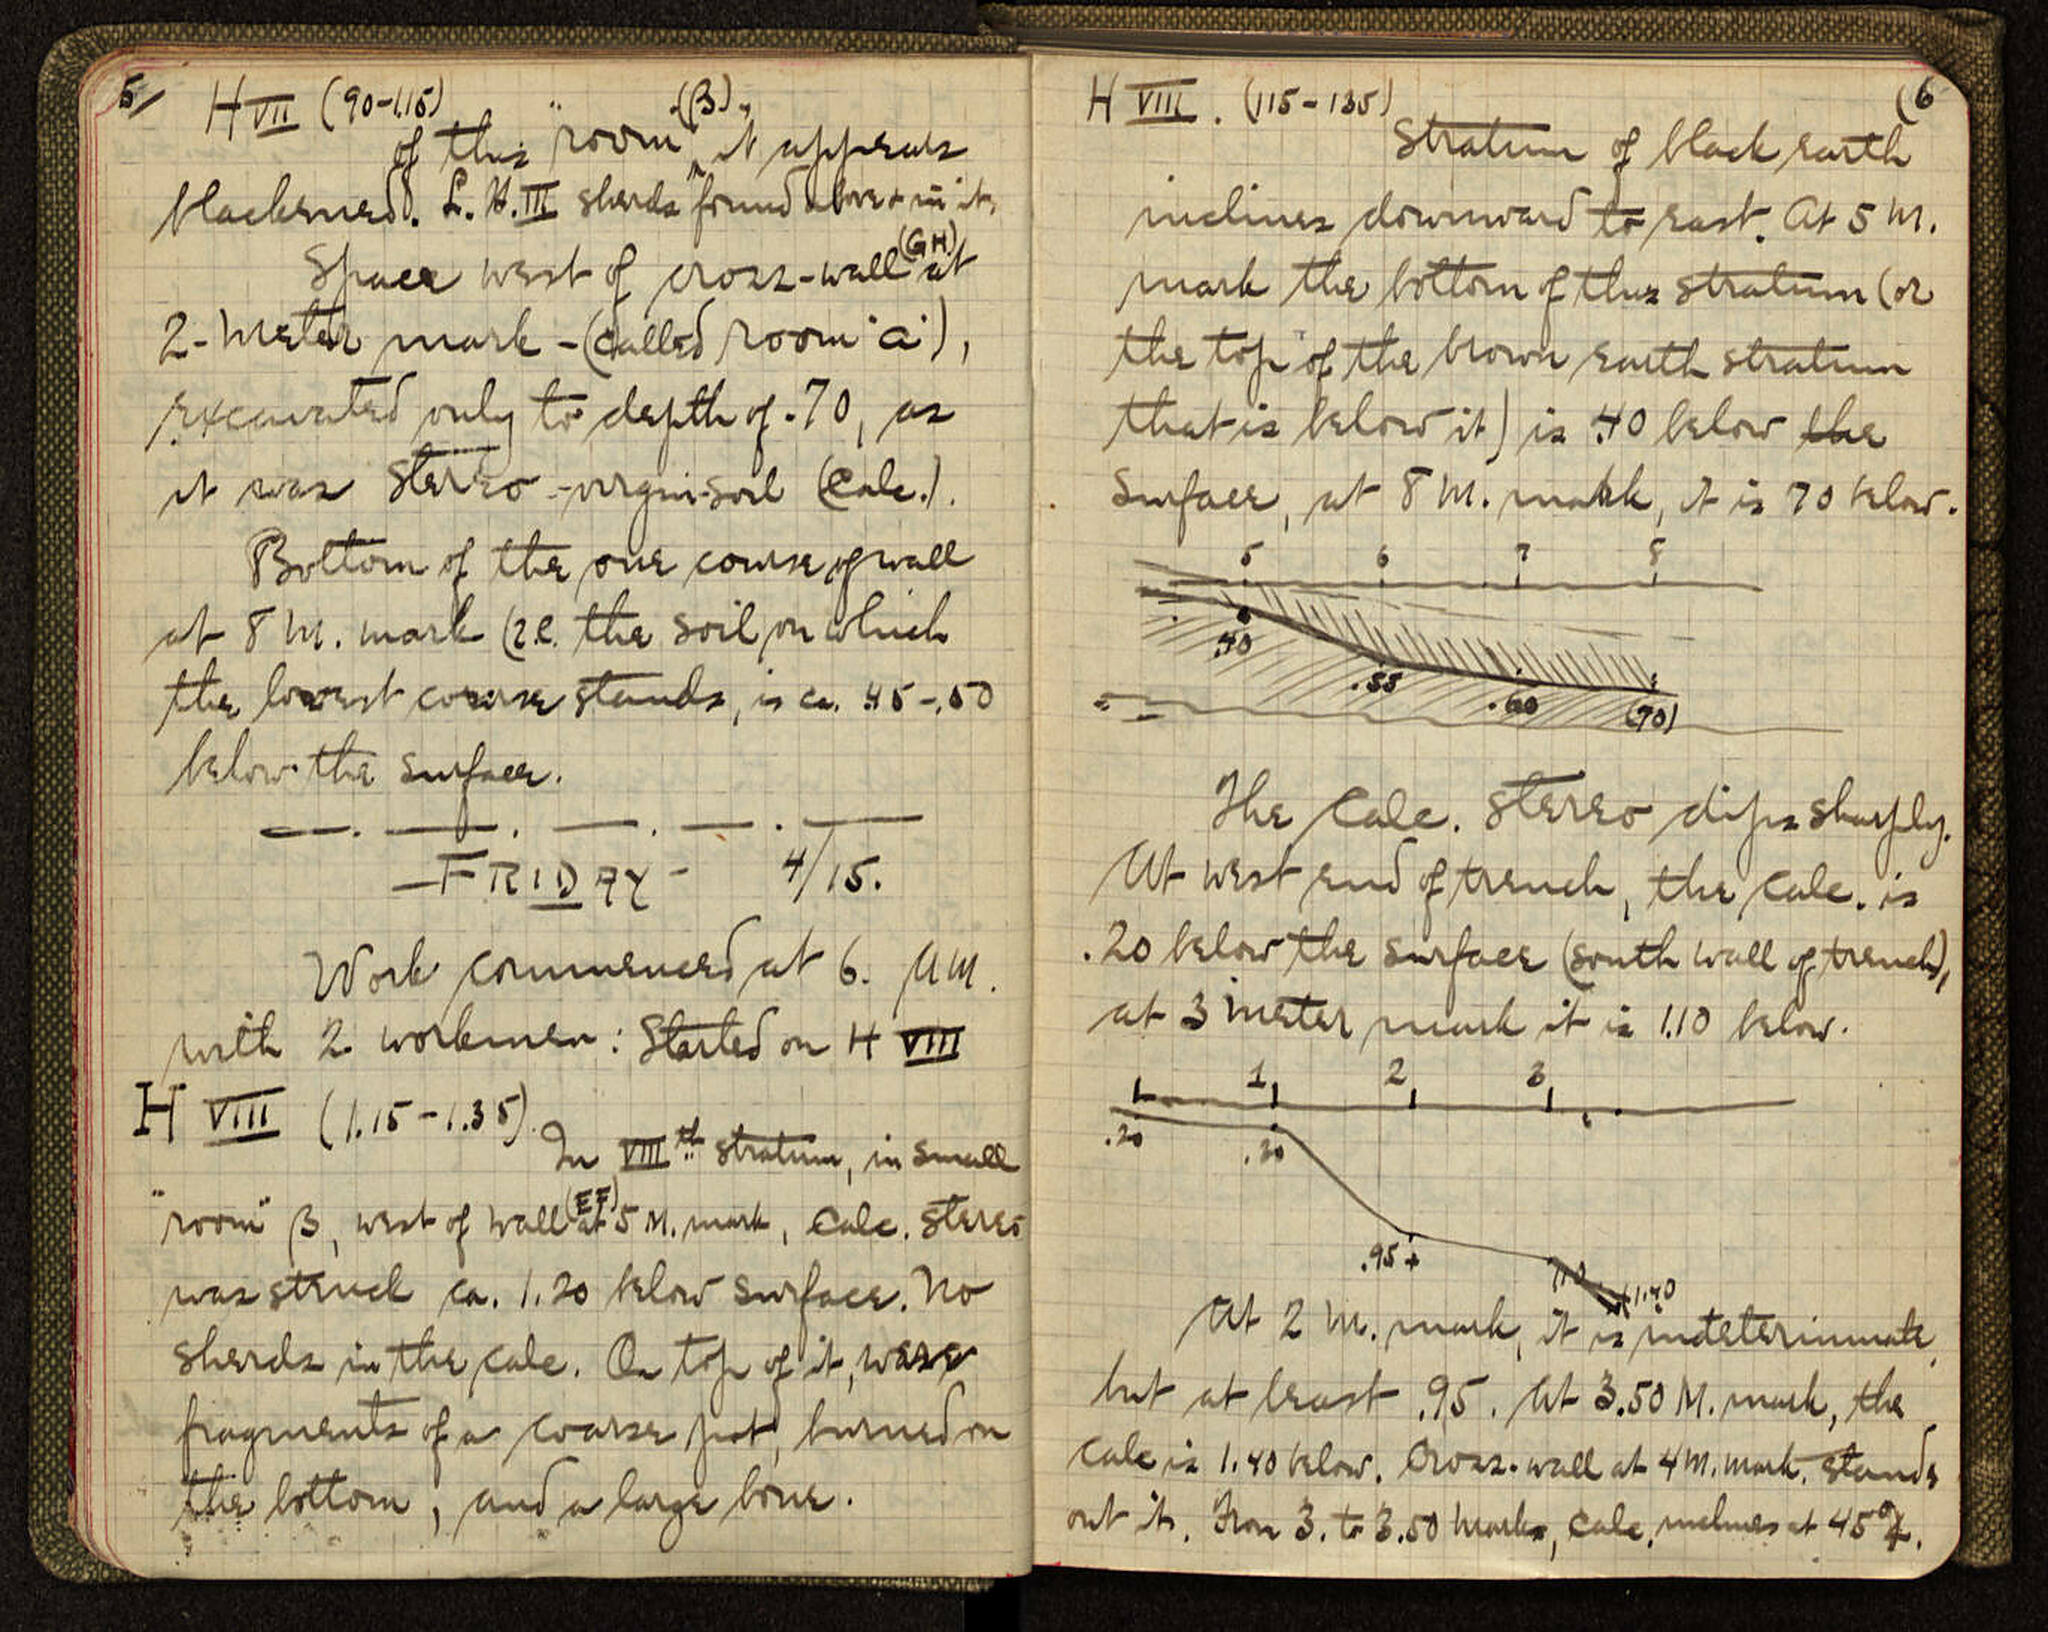 5/
H VII (90-1.15)
of this "room (β)" it appears
blackened. L.H.III sherds found above + in it.
Space west of cross-wall (GH) at
2-meter mark - (called room "a"),
excavated only to depth of .70, as
it was stereo - virgin-soil (Calc.).
Bottom of the one course of wall
at 8 M. mark (i.e. the soil on which
the lowest course stands, is ca. .45-.50
below the surface.
- FRIDAY - 4/15.
Work commenced at 6. AM.
with 2 workmen: Started on H VIII
H VIII (1.15-1.35).
In VIIIth stratum, in small
"room" β, west of wall (EF) at 5 M. mark, Calc. stereo
was struck ca. 1.20 below surface. No
sherds in the calc. On top of it, were
fragments of a coarse pot, burned on
the bottom, and a large bone.
(6
H VIII. (115-135)
Stratum of black earth
inclines downward to east. At 5 M.
mark the bottom of this stratum (or
the top of the brown earth stratum
that is below it) is .40 below the
surface, at 8 M. mark, it is 70 below.
5 6 7 8
.40
.55
.60
(70)
The Calc. stereo dips sharply.
At west end of trench, the Calc. is
.20 below the surface (south wall of trench),
at 3 meter mark it is 1.10 below.
1 2 3
.20
.20
.95+
1.10
1.40
At 2 M. mark, it is indeterminate,
but at least .95. At 3.50 M. mark, the
Calc is 1.40 below. Cross-wall at 4 M. mark. stands
on it. From 3. to 3.50 marks, Calc. inclines at 45°